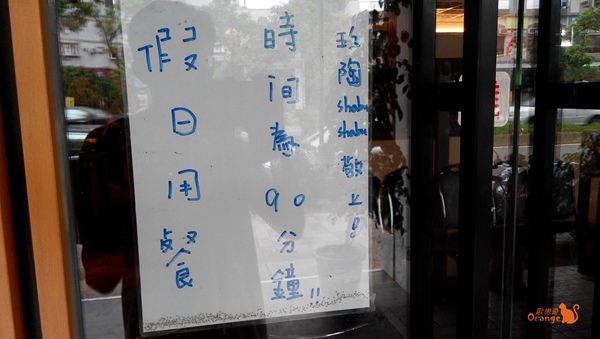 假日用餐
時间為90分鐘!!
玫陶shabu shabu敬上
Orange